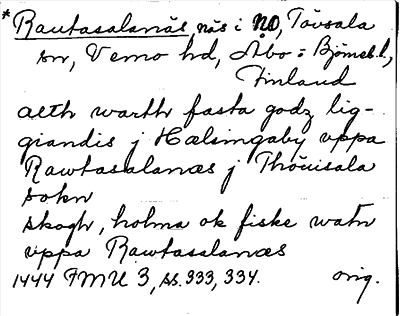 *Rautasalanäs, näs i NO, Tövsala
sn, Vemo hd, Åbo=Björneb.l.,
Finland
aeth warth fasta godz lig-
giandis j Hælsingaby vppa
Rawtasalanæs j Thöuisala
sokn
skogh, holma ok fiske watn
vppa Rawtasalanæs
1444 FMU 3, ss. 333, 334. orig.